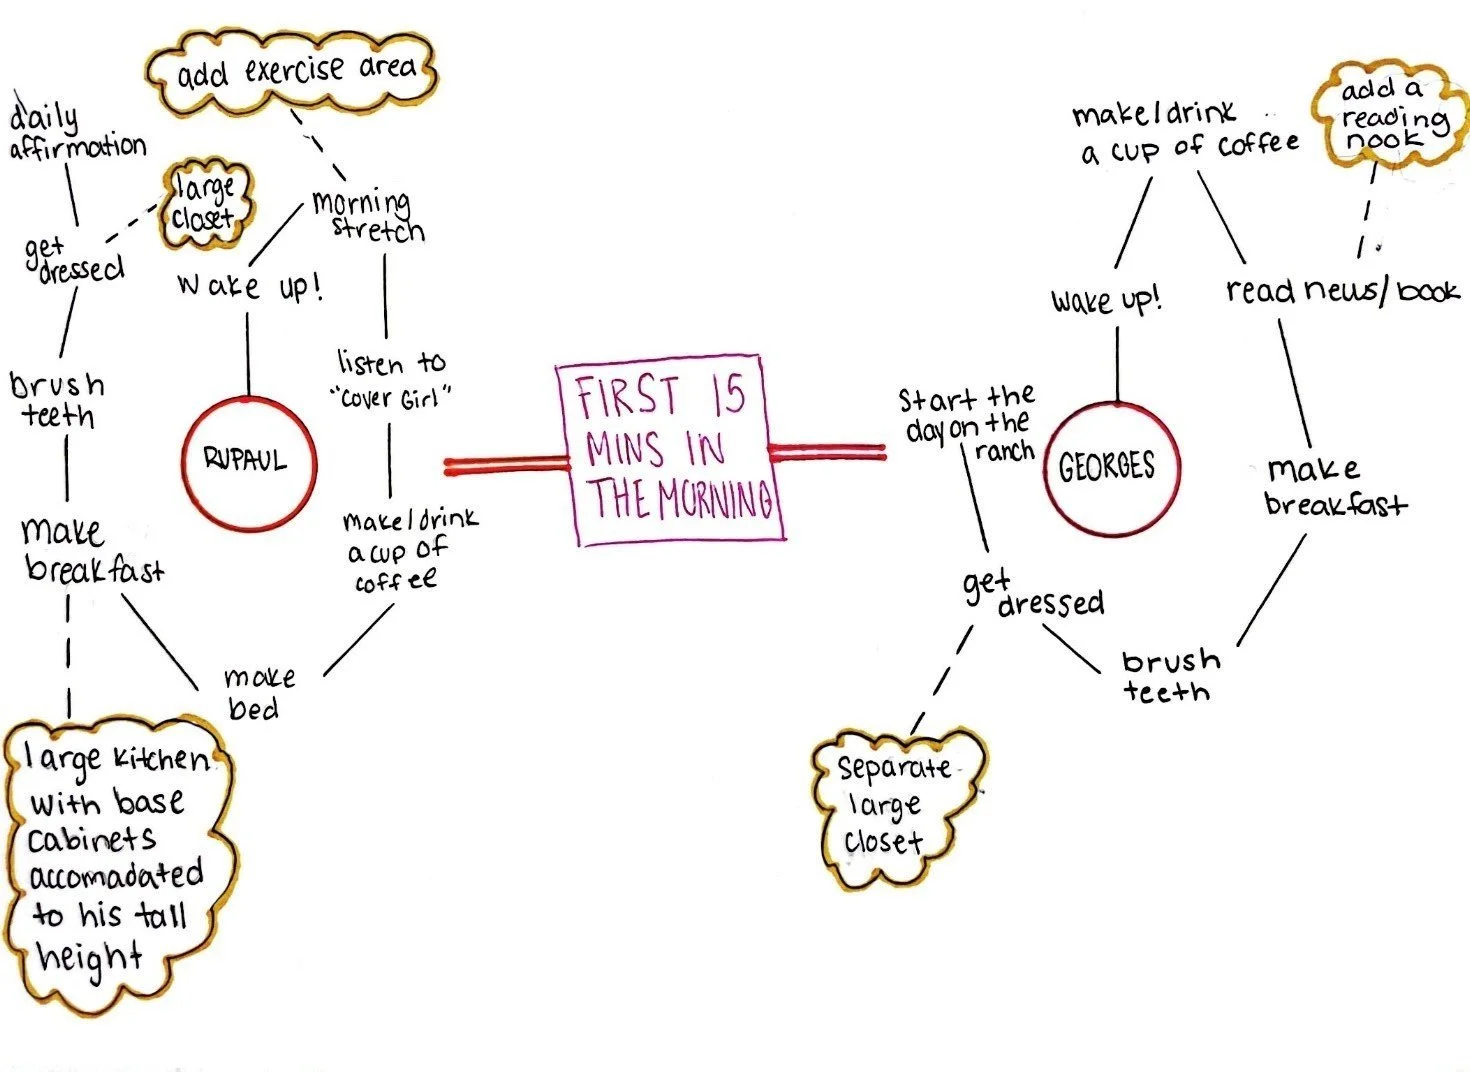 add exercise area
daily
affirmation
large
closet
morning
stretch
get
dressed
wake up!
listen to
"cover Girl"
brush
teeth
RUPAUL
make
breakfast
make/drink
a cup of
coffee
make
bed
large kitchen
with base
cabinets
accomadated
to his tall
height
FIRST 15
MINS IN
THE MORNING
make/drink
a cup of coffee
add a
reading
nook
wake up!
read news/book
Start the
day on the
ranch
GEORGES
make
breakfast
get
dressed
brush
teeth
separate
large
closet